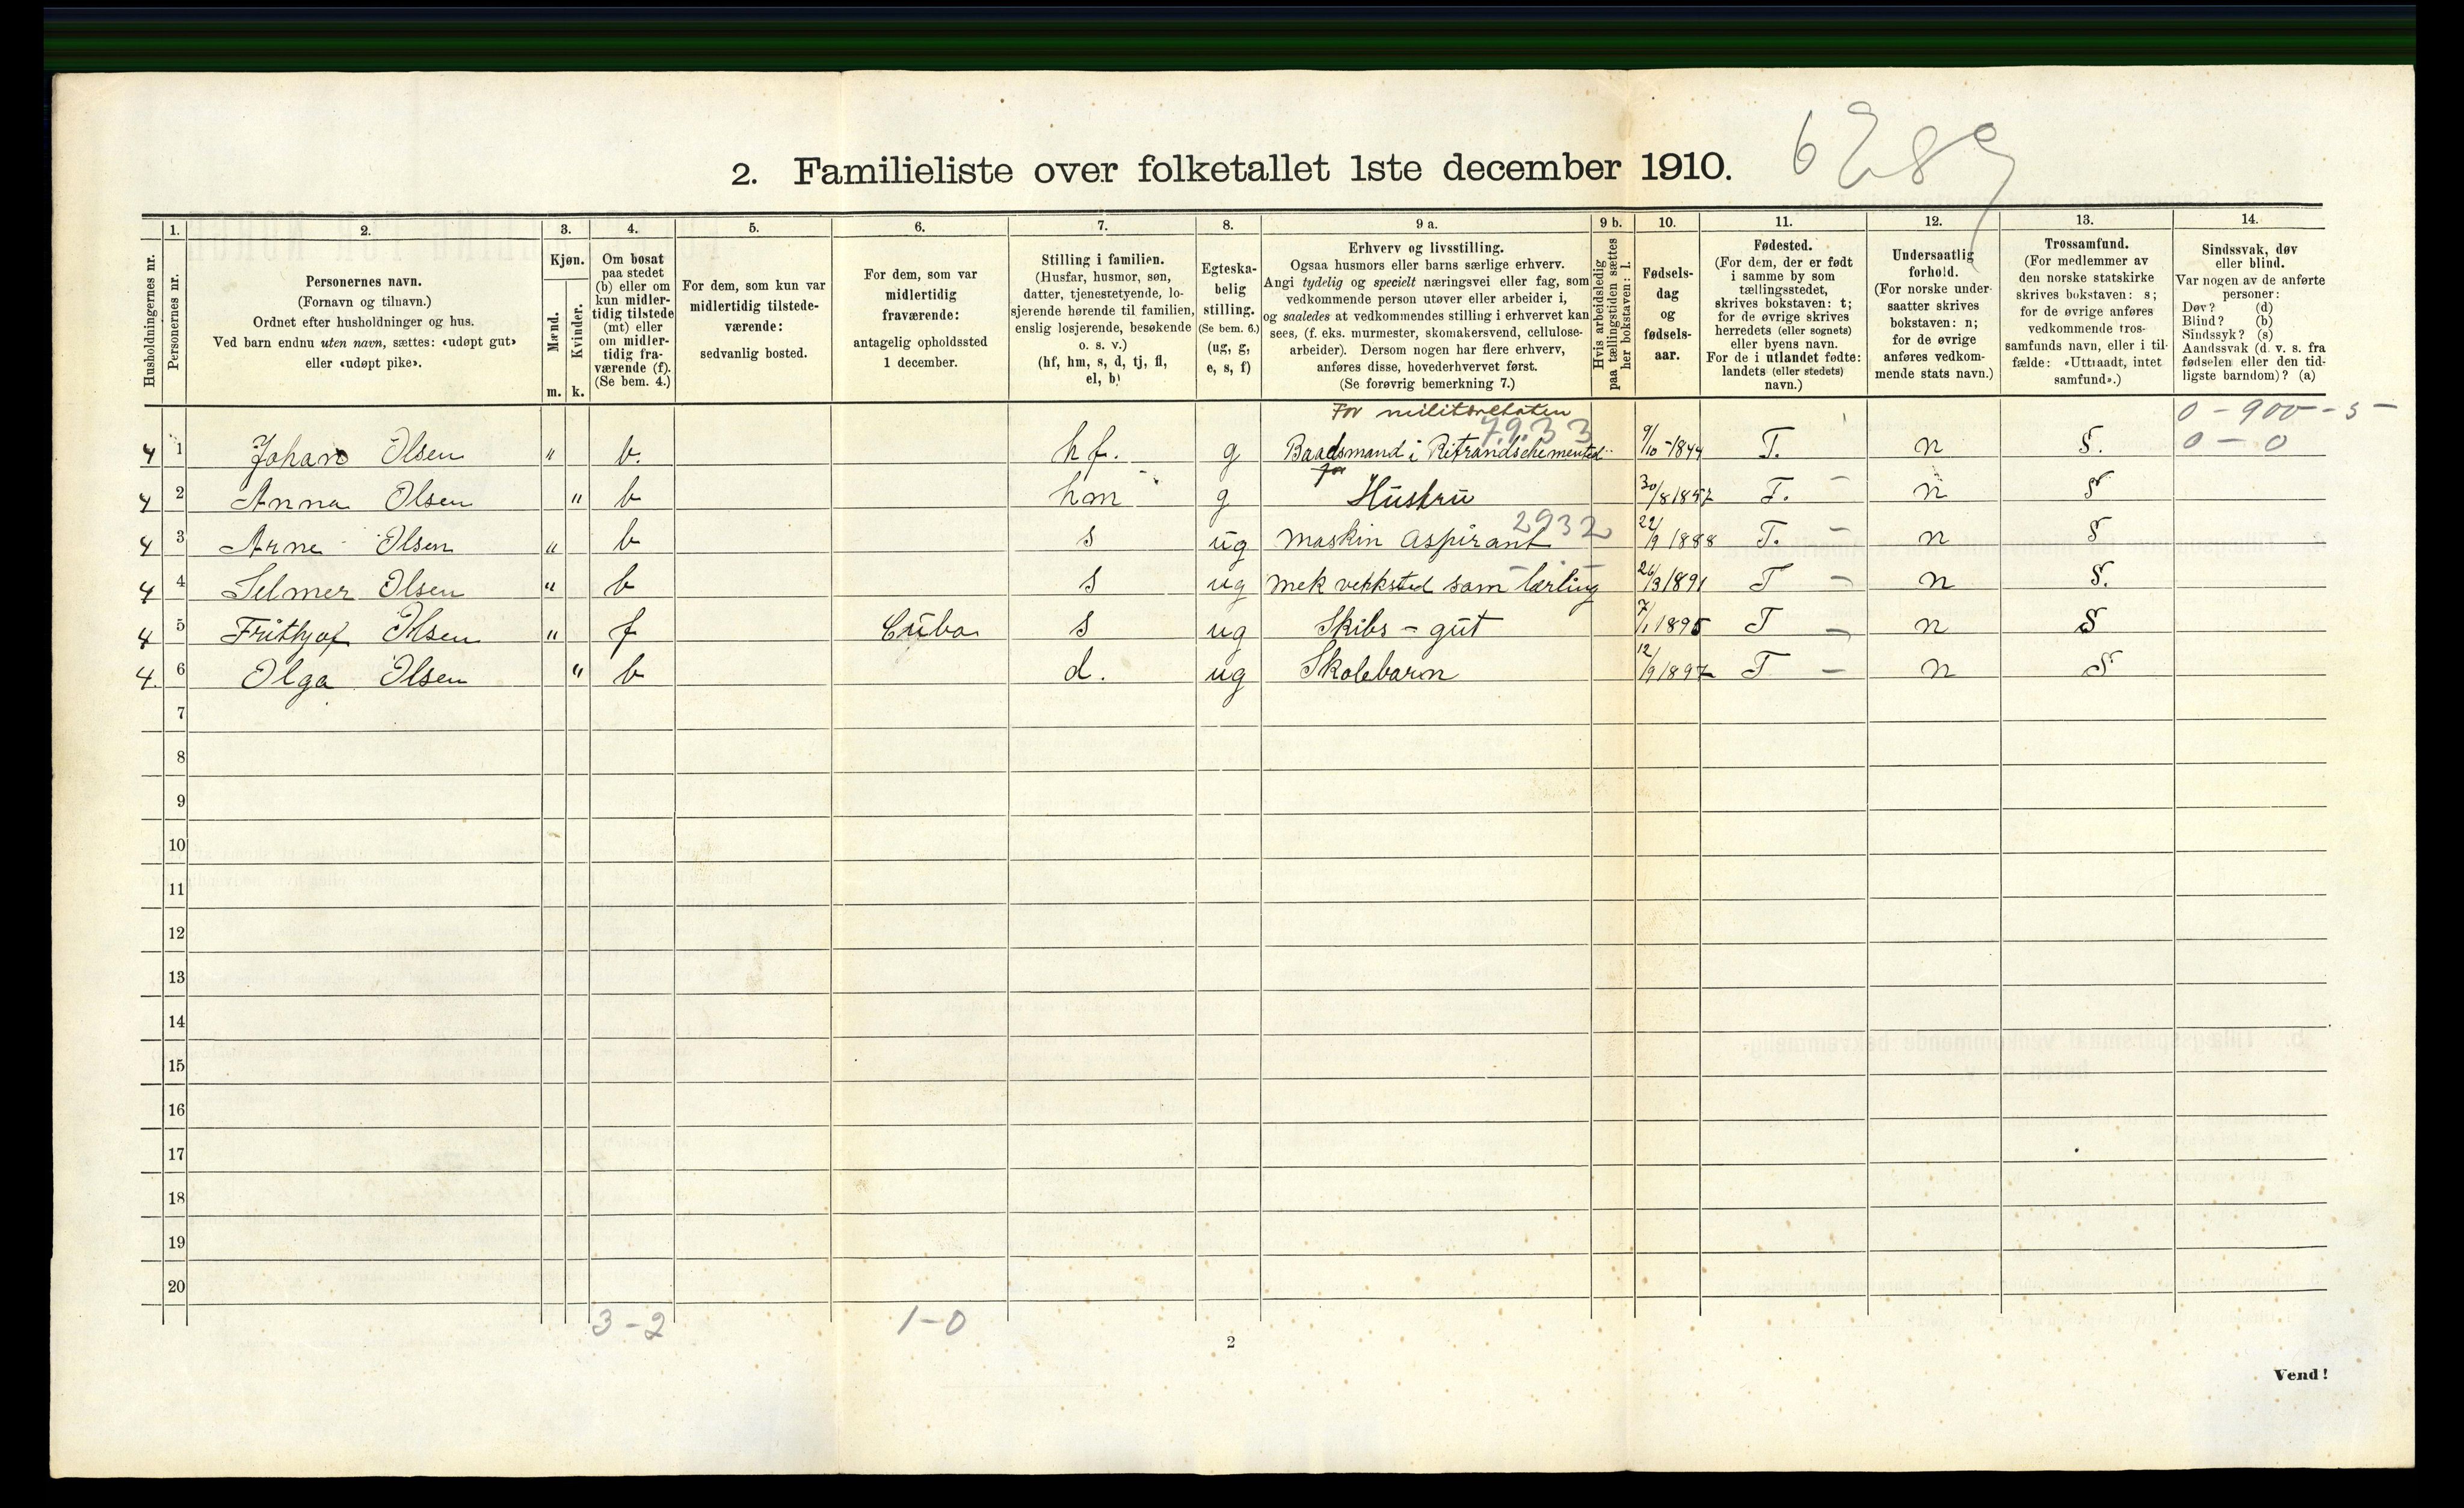 2. Familieliste over folketallet 1ste december 1910.
6289
Husholdningernes nr.
1.
Personernes nr.
2.
Personernes navn.
(Fornavn og tilnavn.)
Ordnet efter husholdninger og hus.
Ved barn endnu uten navn, sættes: «udøpt gut»
eller «udøpt pike».
3.
Kjøn.
Mænd.
Kvinder.
m. k.
4.
Om bosat
paa stedet
(b) eller om
kun midler-
tidig tilstede
(mt) eller
om midler-
tidig fra-
værende (f).
(Se bem. 4.)
5.
For dem, som kun var
midlertidig tilstede-
værende:
sedvanlig bosted.
6.
For dem, som var
midlertidig
fraværende:
antagelig opholdssted
1 december.
7.
Stilling i familien.
(Husfar, husmor, søn,
datter, tjenestetyende, lo-
sjerende hørende til familien,
enslig losjerende, besøkende
o. s. v.)
(hf, hm, s, d, tj, fl,
el, b)
8.
Egteska-
belig
stilling.
(Se bem. 6.)
(ug, g,
e, s, f)
9 a.
Erhverv og livsstilling.
Ogsaa husmors eller barns særlige erhverv.
Angi tydelig og specielt næringsvei eller fag, som
vedkommende person utøver eller arbeider i,
og saaledes at vedkommendes stilling i erhvervet kan
sees, (f. eks. murmester, skomakersvend, cellulose-
arbeider). Dersom nogen har flere erhverv,
anføres disse, hovederhvervet først.
(Se forøvrig bemerkning 7.)
9 b.
Hvis arbeidsledig
paa tællingstiden sættes
her bokstaven: l.
10.
Fødsels-
dag
og
fødsels-
aar.
11.
Fødested.
(For dem, der er født
i samme by som
tællingsstedet,
skrives bokstaven: t;
for de øvrige skrives
herredets (eller sognets)
eller byens navn.
For de i utlandet fødte:
landets (eller stedets)
navn.)
12.
Undersaatlig
forhold.
(For norske under-
saatter skrives
bokstaven: n;
for de øvrige
anføres vedkom-
mende stats navn.)
13.
Trossamfund.
(For medlemmer av
den norske statskirke
skrives bokstaven: s;
for de øvrige anføres
vedkommende tros-
samfunds navn, eller i til-
fælde: «Uttraadt, intet
samfund».)
14.
Sindssvak, døv
eller blind.
Var nogen av de anførte
personer:
Døv? (d)
Blind? (b)
Sindssyk? (s)
Aandssvak (d. v. s. fra
fødselen eller den tid-
ligste barndom)? (a)
For militæretaten 0-900-s-
7.9.33 0-0
4 1 Johan Olsen " b. hf. g Baadsmand i 9/10-1844 T. n S.
4 2 Anna Olsen " b hm g Hustru 30/8 1857 T. - n S
2932
4 3 Arne Olsen " b s ug Maskin Aspirant 22/9 1888 T. - n S
4 4 Selmer Olsen " b s ug Mek verksted som lærling 26/3 1891 T - n S.
4 5 Frithjof Olsen " f Cuba s ug Skibs-gut 7/1 1895 T - n S
4. 6 Olga Olsen " b d. ug Skolebarn 12/9 1897 T - n S
7
8
9
10
11
12
13
14
15
16
17
18
19
20
3-2 1-0
2
Vend!